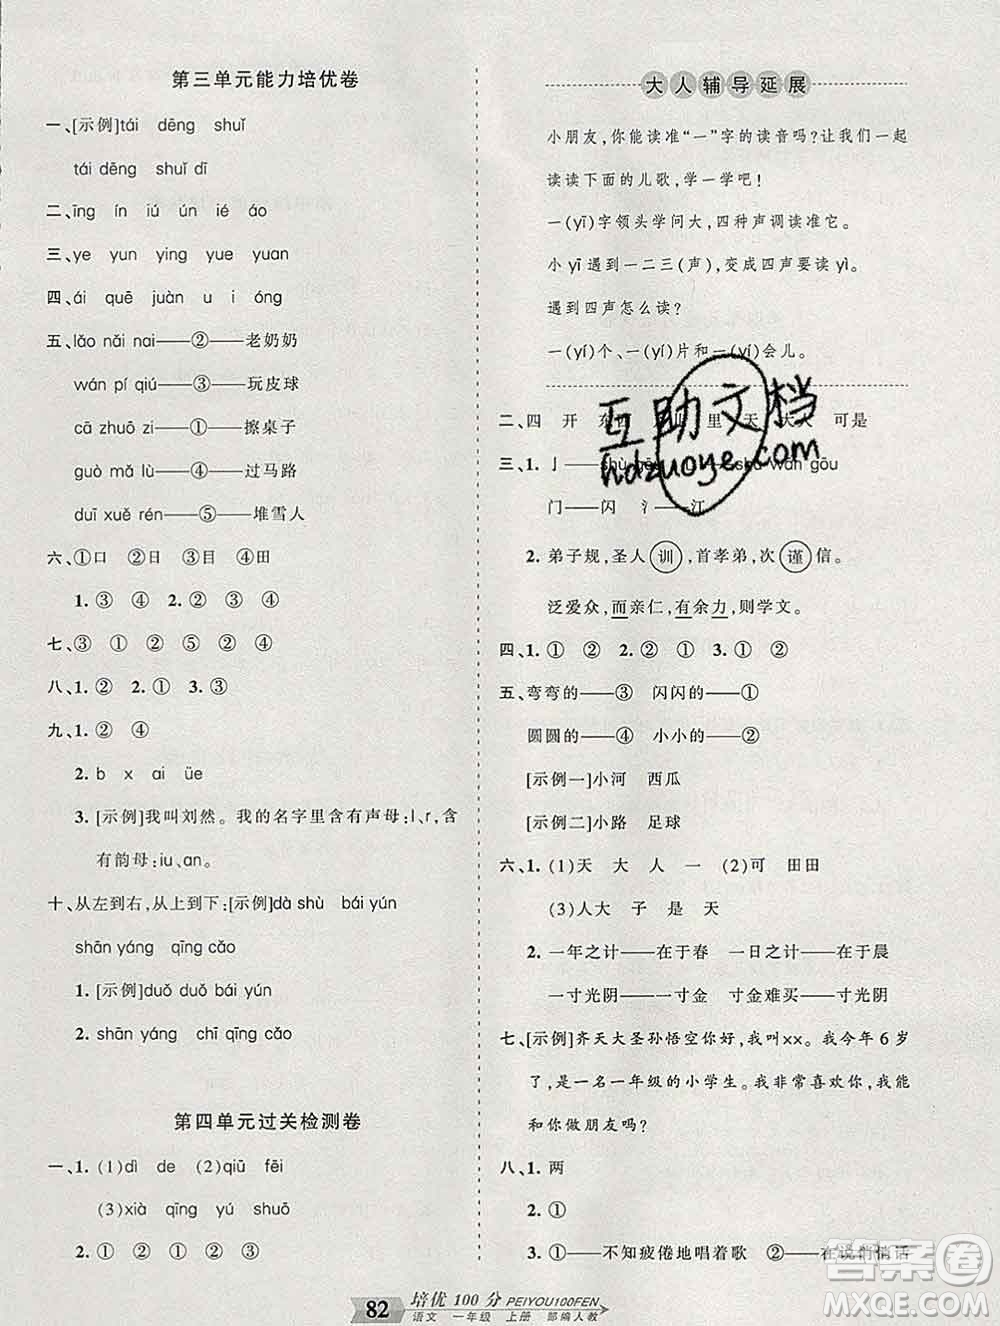 第三单元能力培优卷
一、[示例]tái dēng shuǐ
tái dēng shuǐ dī
二、īng ín iú ún ié áo
三、ye yun ying yue yuan
四、ái quē juàn u i óng
五、lǎo nǎi nai——②——老奶奶
wán pí qiú——③——玩皮球
cā zhuō zi——①——擦桌子
guò mǎ lù——④——过马路
duī xuě rén——⑤——堆雪人
六、①口 ②日 ③目 ④田
1. ③ ④ 2. ② ③ ①
七、③ ① ② ⑤ ② ④
八、1. ② 2. ① 3. ③
九、1. ② ④
2. b x ai üe
3. [示例]我叫刘然。我的名字里含有声母:l、r,含
有韵母:iu、an。
十、从左到右,从上到下:[示例]dà shù bái yún
shān yáng qīng cǎo
1. [示例]duǒ duǒ bái yún
2. shān yáng chī qīng cǎo
第四单元过关检测卷
一、1. (1)dì de (2)qiū fēi
(3)xià qīng yú shuō
2. ① ② ① ② ①
大人辅导延展
小朋友,你能读准“一”字的读音吗?让我们一起
读读下面的儿歌,学一学吧!
一(yī)字领头学问大,四种声调读准它。
小 yī 遇到一二三(声),变成四声要读 yì。
遇到四声怎么读?
一(yí)个、一(yí)片和一(yí)会儿。
二、四 开 东 里 天 可是
三、1. 亅—— shù gōu shù wān gōu
门——闪 氵——江
2. 弟子规,圣人训,首孝弟,次谨信。
泛爱众,而亲仁,有余力,则学文。
四、1. ① ② 2. ② ① 3. ① ②
五、弯弯的——③ 闪闪的——①
圆圆的——④ 小小的——②
[示例一]小河 西瓜
[示例二]小路 足球
六、1. (1)天 大 人 一 (2)可 田田
(3)人大 子 是 天
2. 一年之计——在于春 一日之计——在于晨
一寸光阴——一寸金 寸金难买——寸光阴
七、[示例]齐天大圣孙悟空你好,我叫xx。我今年 6 岁
了,是一名一年级的小学生。我非常喜欢你,我能
和你做朋友吗?
八、1. 两
2. ①
3. ①——不知疲倦地唱着歌 ②——在说悄悄话
互助文档
hdzuoye.com
82 培优 100 分 PEIYOU100FEN
语文 一年级 上册 部编人教
答案圈
MXQE.COM